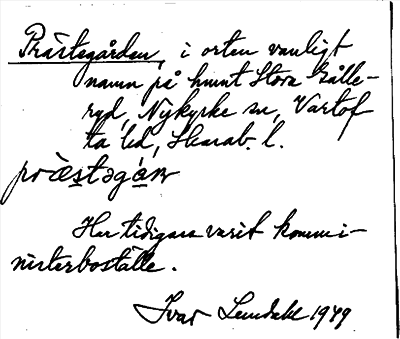 Prästegården, i orten vanligt
namn på hmnt Stora Gålle-
ryd, Nykyrke sn, Vartof
ta hd, Skarab. l.
prä̀stəgán
Har tidigare varit kommi-
nisterboställe.
Ivar Lundahl 1949